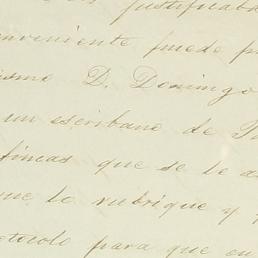 justificaba
conveniente puede p
ismo D. Domingo
un escribano de
fincas que se le a
que lo rubrique y
otocolo para que en